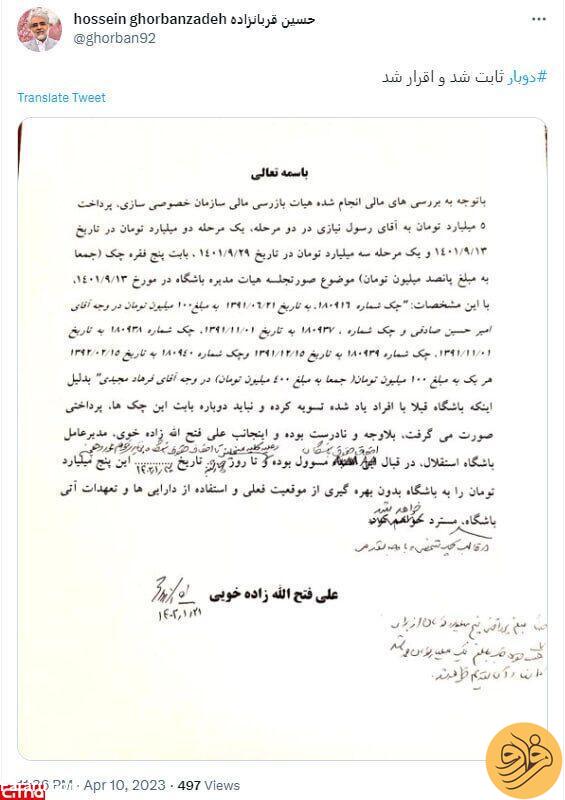 hossein ghorbanzadeh حسین قربانزاده
@ghorban92
#دوبار ثابت شد و اقرار شد
Translate Tweet
باسمه تعالی
باتوجه به بررسی های مالی انجام شده هیات بازرسی مالی سازمان خصوصی سازی، پرداخت
۵ میلیارد تومان به آقای رسول نیازی در دو مرحله، یک مرحله دو میلیارد تومان در تاریخ
۱۴۰۱/۹/۱۳ و یک مرحله سه میلیارد تومان در تاریخ ۱۴۰۱/۹/۲۹، بابت پنج فقره چک (جمعا
به مبلغ پانصد میلیون تومان) موضوع صورتجلسه هیات مدیره باشگاه در مورخ ۱۴۰۱/۹/۱۳،
با این مشخصات: "چک شماره ۱۸۰۹۱۶، به تاریخ ۱۳۹۱/۰۶/۲۱ به مبلغ ۱۰۰ میلیون تومان در وجه آقای
امیر حسین صادقی و چک شماره ۱۸۰۹۳۷، به تاریخ ۱۳۹۱/۱۱/۰۱، چک شماره ۱۸۰۹۳۸ به تاریخ
۱۳۹۱/۱۱/۰۱، چک شماره ۱۸۰۹۳۹ به تاریخ ۱۳۹۱/۱۲/۱۵ وچک شماره ۱۸۰۹۴۰ به تاریخ ۱۳۹۲/۰۲/۱۵
هر یک به مبلغ ۱۰۰ میلیون تومان( جمعا به مبلغ ۴۰۰ میلیون تومان) در وجه آقای فرهاد مجیدی" بدلیل
اینکه باشگاه قبلا با افراد یاد شده تسویه کرده و نباید دوباره بابت این چک ها، پرداختی
صورت می گرفت، بلاوجه و نادرست بوده و اینجانب علی فتح الله زاده خوی، مدیرعامل
باشگاه استقلال، در قبال این مسوول بوده و تا روز تاریخ ............ این پنج میلیارد
۱۴۰۲/۰۱/۳۱
تومان را به باشگاه بدون بهره گیری از موقعیت فعلی و استفاده از دارایی ها و تعهدات آتی
خواهد شد
باشگاه، مسترد خواهم کرد.
علی فتح الله زاده خویی
۱۴۰۲/۱/۲۱
11:26 PM · Apr 10, 2023 · 497 Views
فردو